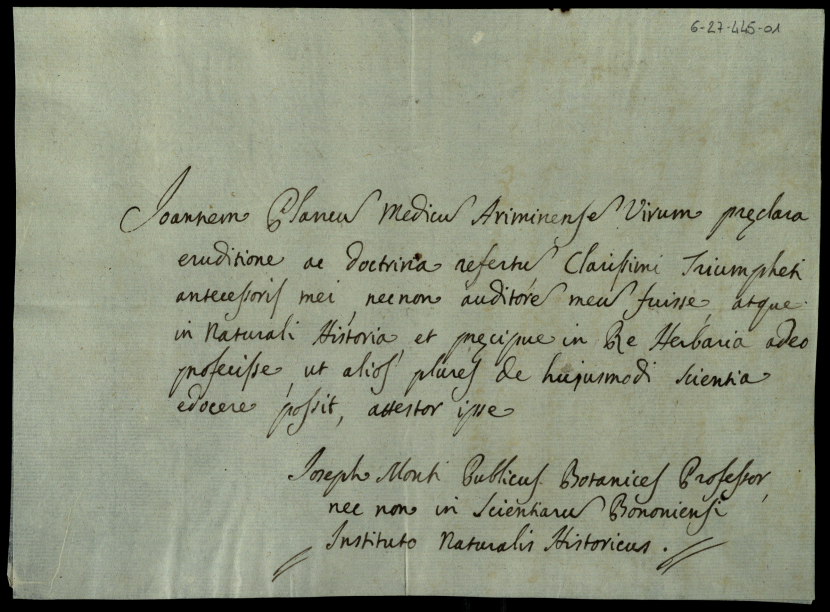 6-27-445-01
Joannem Plancũ Medicũ Ariminensẽ Virum pręclara
eruditione ac doctrina refertũ Clarissimi Triumpheti
antecessoris mei, necnon auditorẽ meũ fuisse, atque
in Naturali Historia, et pręcipue in Re Herbaria adeo
profecisse, ut alios plures de hujusmodi scientia
edocere possit, attestor ipse
Joseph Monti Publicus Botanices Professor,
nec non in Scientiarũ Bononiensi
Instituto Naturalis Historicus.